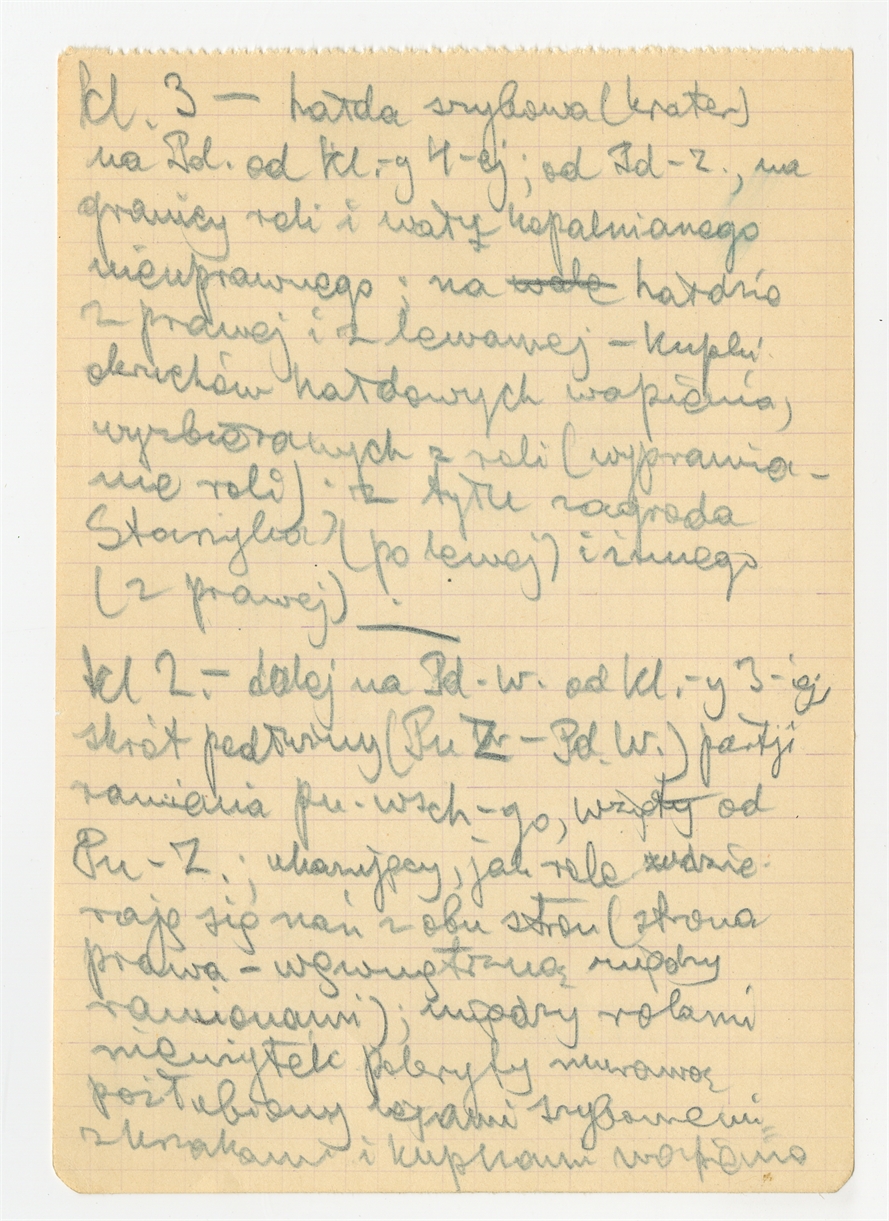 kl. 3 — hałda szybowa (krater)
na Pd. od kl.-y 4-ej; od Pd-Z., na
granicy roli i wału kopalnianego
nieuprawnego; na wale hałdzie
z prawej i z lewawej – kupki
okruchów hałdowych wapienia,
wyzbieranych z roli (wyprawia-
nie roli). z tyłu zagroda
(po lewej) i innego
(z prawej).
kl 2.– dalej na Pd-W. od kl.-y 3-iej,
skrót podłużny (Pn Z – Pd. W.) partji
ramienia pn.-wsch-go, wzięty od
Pn-Z.; ukazujący, jak role wdzie-
rają się nań z obu stron (strona
prawa – wewnętrzna między
ramionami); między rolami
nieużytek pokryty murawą
pożłobiony szybowemi
z krzakami i kupkami wapienia